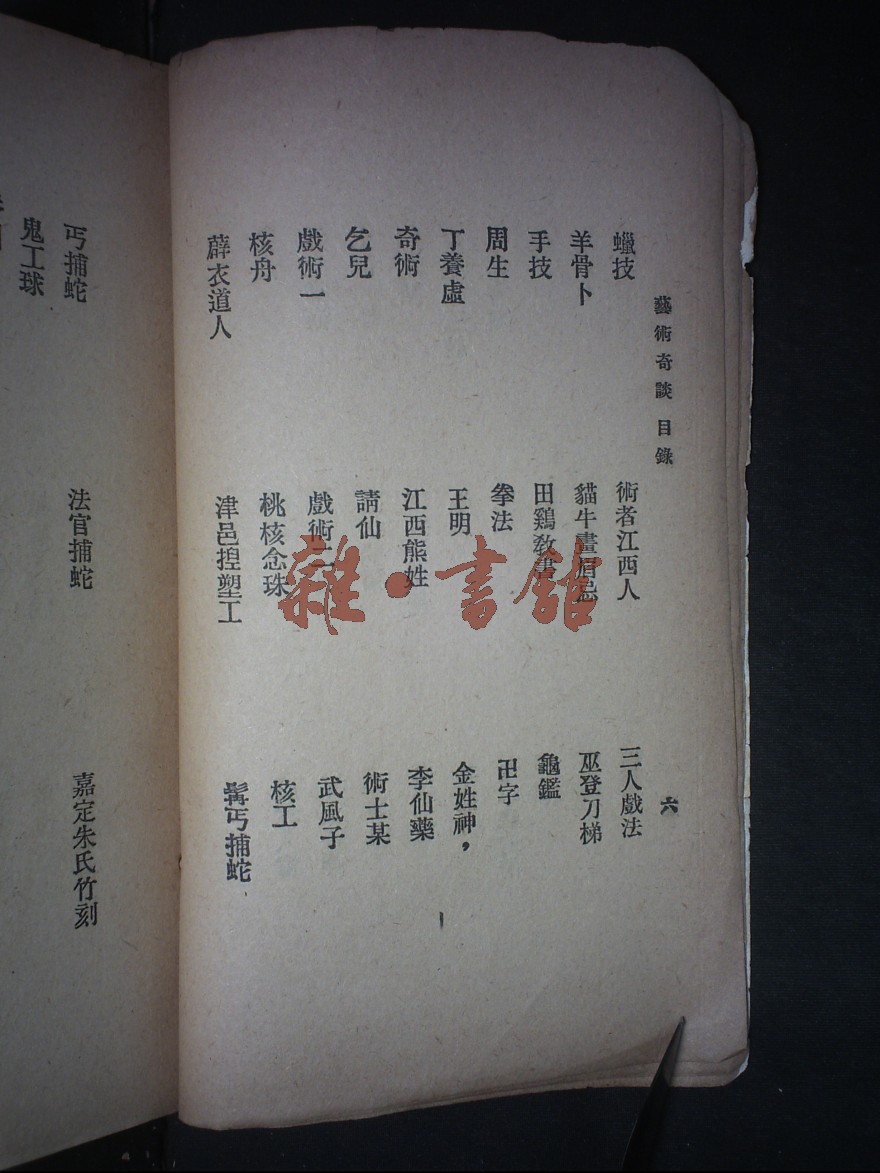 藝術奇談 目錄 六
蠟技 術者江西人 三人戲法
羊骨卜 貓牛畫眉忌 巫登刀梯
手技 田鷄教書 龜鑑
周生 拳法 卍字
丁養虛 王明 金姓神，
奇術 江西熊姓 李仙藥
乞兒 請仙 術士某
戲術一 戲術二 武風子
核舟 桃核念珠 核工
薜衣道人 津邑揑塑工 髯丐捕蛇
丐捕蛇 法官捕蛇 嘉定朱氏竹刻
鬼工球
雜·書舘